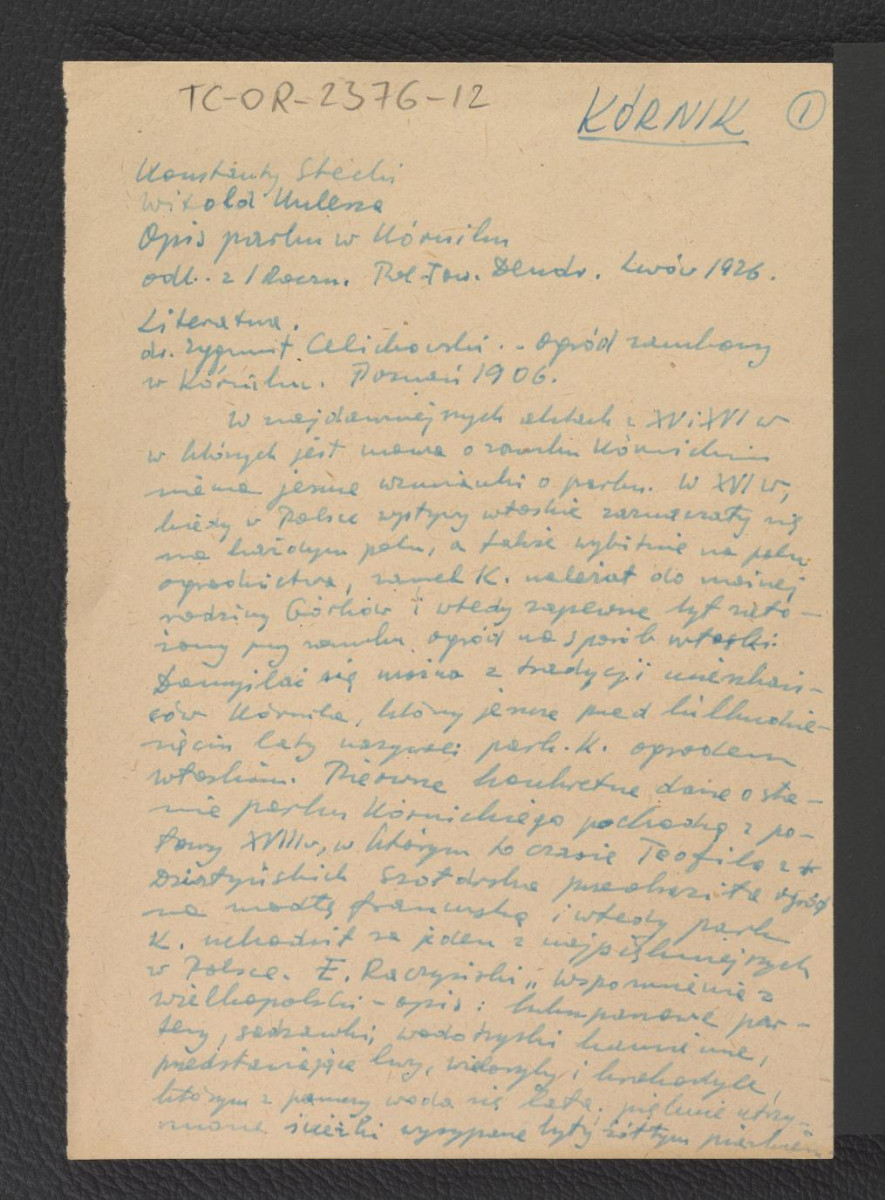 TC-OR-2376-12
KÓRNIK 1
Konstanty Stecki
Witold Kulesza
Opis parku w Kórniku
odb. z I Roczn. Pol. Tow. Dendr. Lwów 1926.
Literatura.
dr. Zygmunt Celichowski. - Ogród zamkowy
w Kórniku. Poznań 1906.
W najdawniejszych aktach z XV i XVI w
w których jest mowa o zamku Kórnickim
niema jeszcze wzmianki o parku. W XVI w,
kiedy w Polsce wpływy włoskie zaznaczały się
na każdym polu, a także wybitnie na polu
ogrodnictwa, zamek K. należał do możnej
rodziny Górków i wtedy zapewne był zało-
żony przy zamku ogród na sposób włoski.
Domyślać się można z tradycji mieszkań-
ców Kórnika, który jeszcze przed kilkudzie-
sięciu laty nazywali park. K. ogrodem
włoskim. Pierwsze konkretne dane o sta-
nie parku Kórnickiego pochodzą z po-
łowy XVIII w, w którym to czasie Teofila z
Działyńskich Szołdrska przekształciła ogród
na modłę francuską i wtedy park
K. uchodził za jeden z najpiękniejszych
w Polsce. E. Raczyński „Wspomnienia
wielkopolski - opis: bukszpanowe par-
tery, sadzawki, wodotryski kamienne,
przedstawiające lwy, wieloryby i krokodyle,
którym z paszczy woda się lała; pięknie utrzy-
mane ścieżki wysypane były żółtym piaskiem